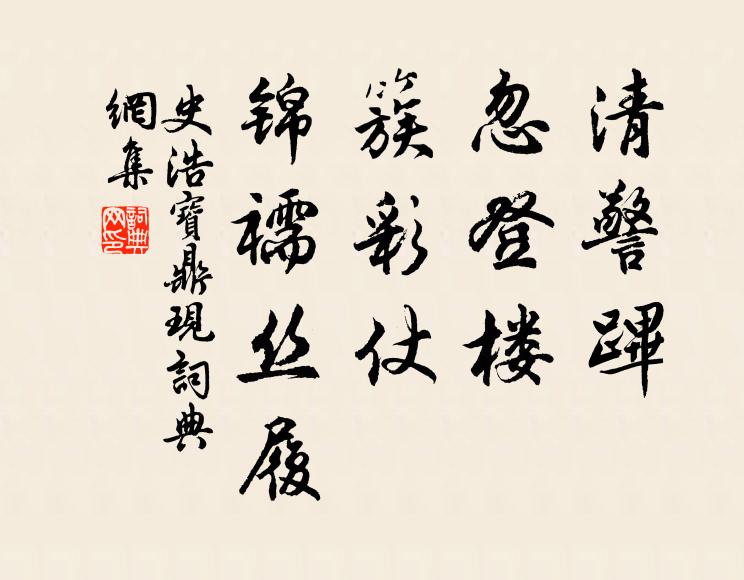 清警跸
忽登楼
簇彩仗
锦襦丝履
史浩寶鼎現詞典
網集
詞典
网印